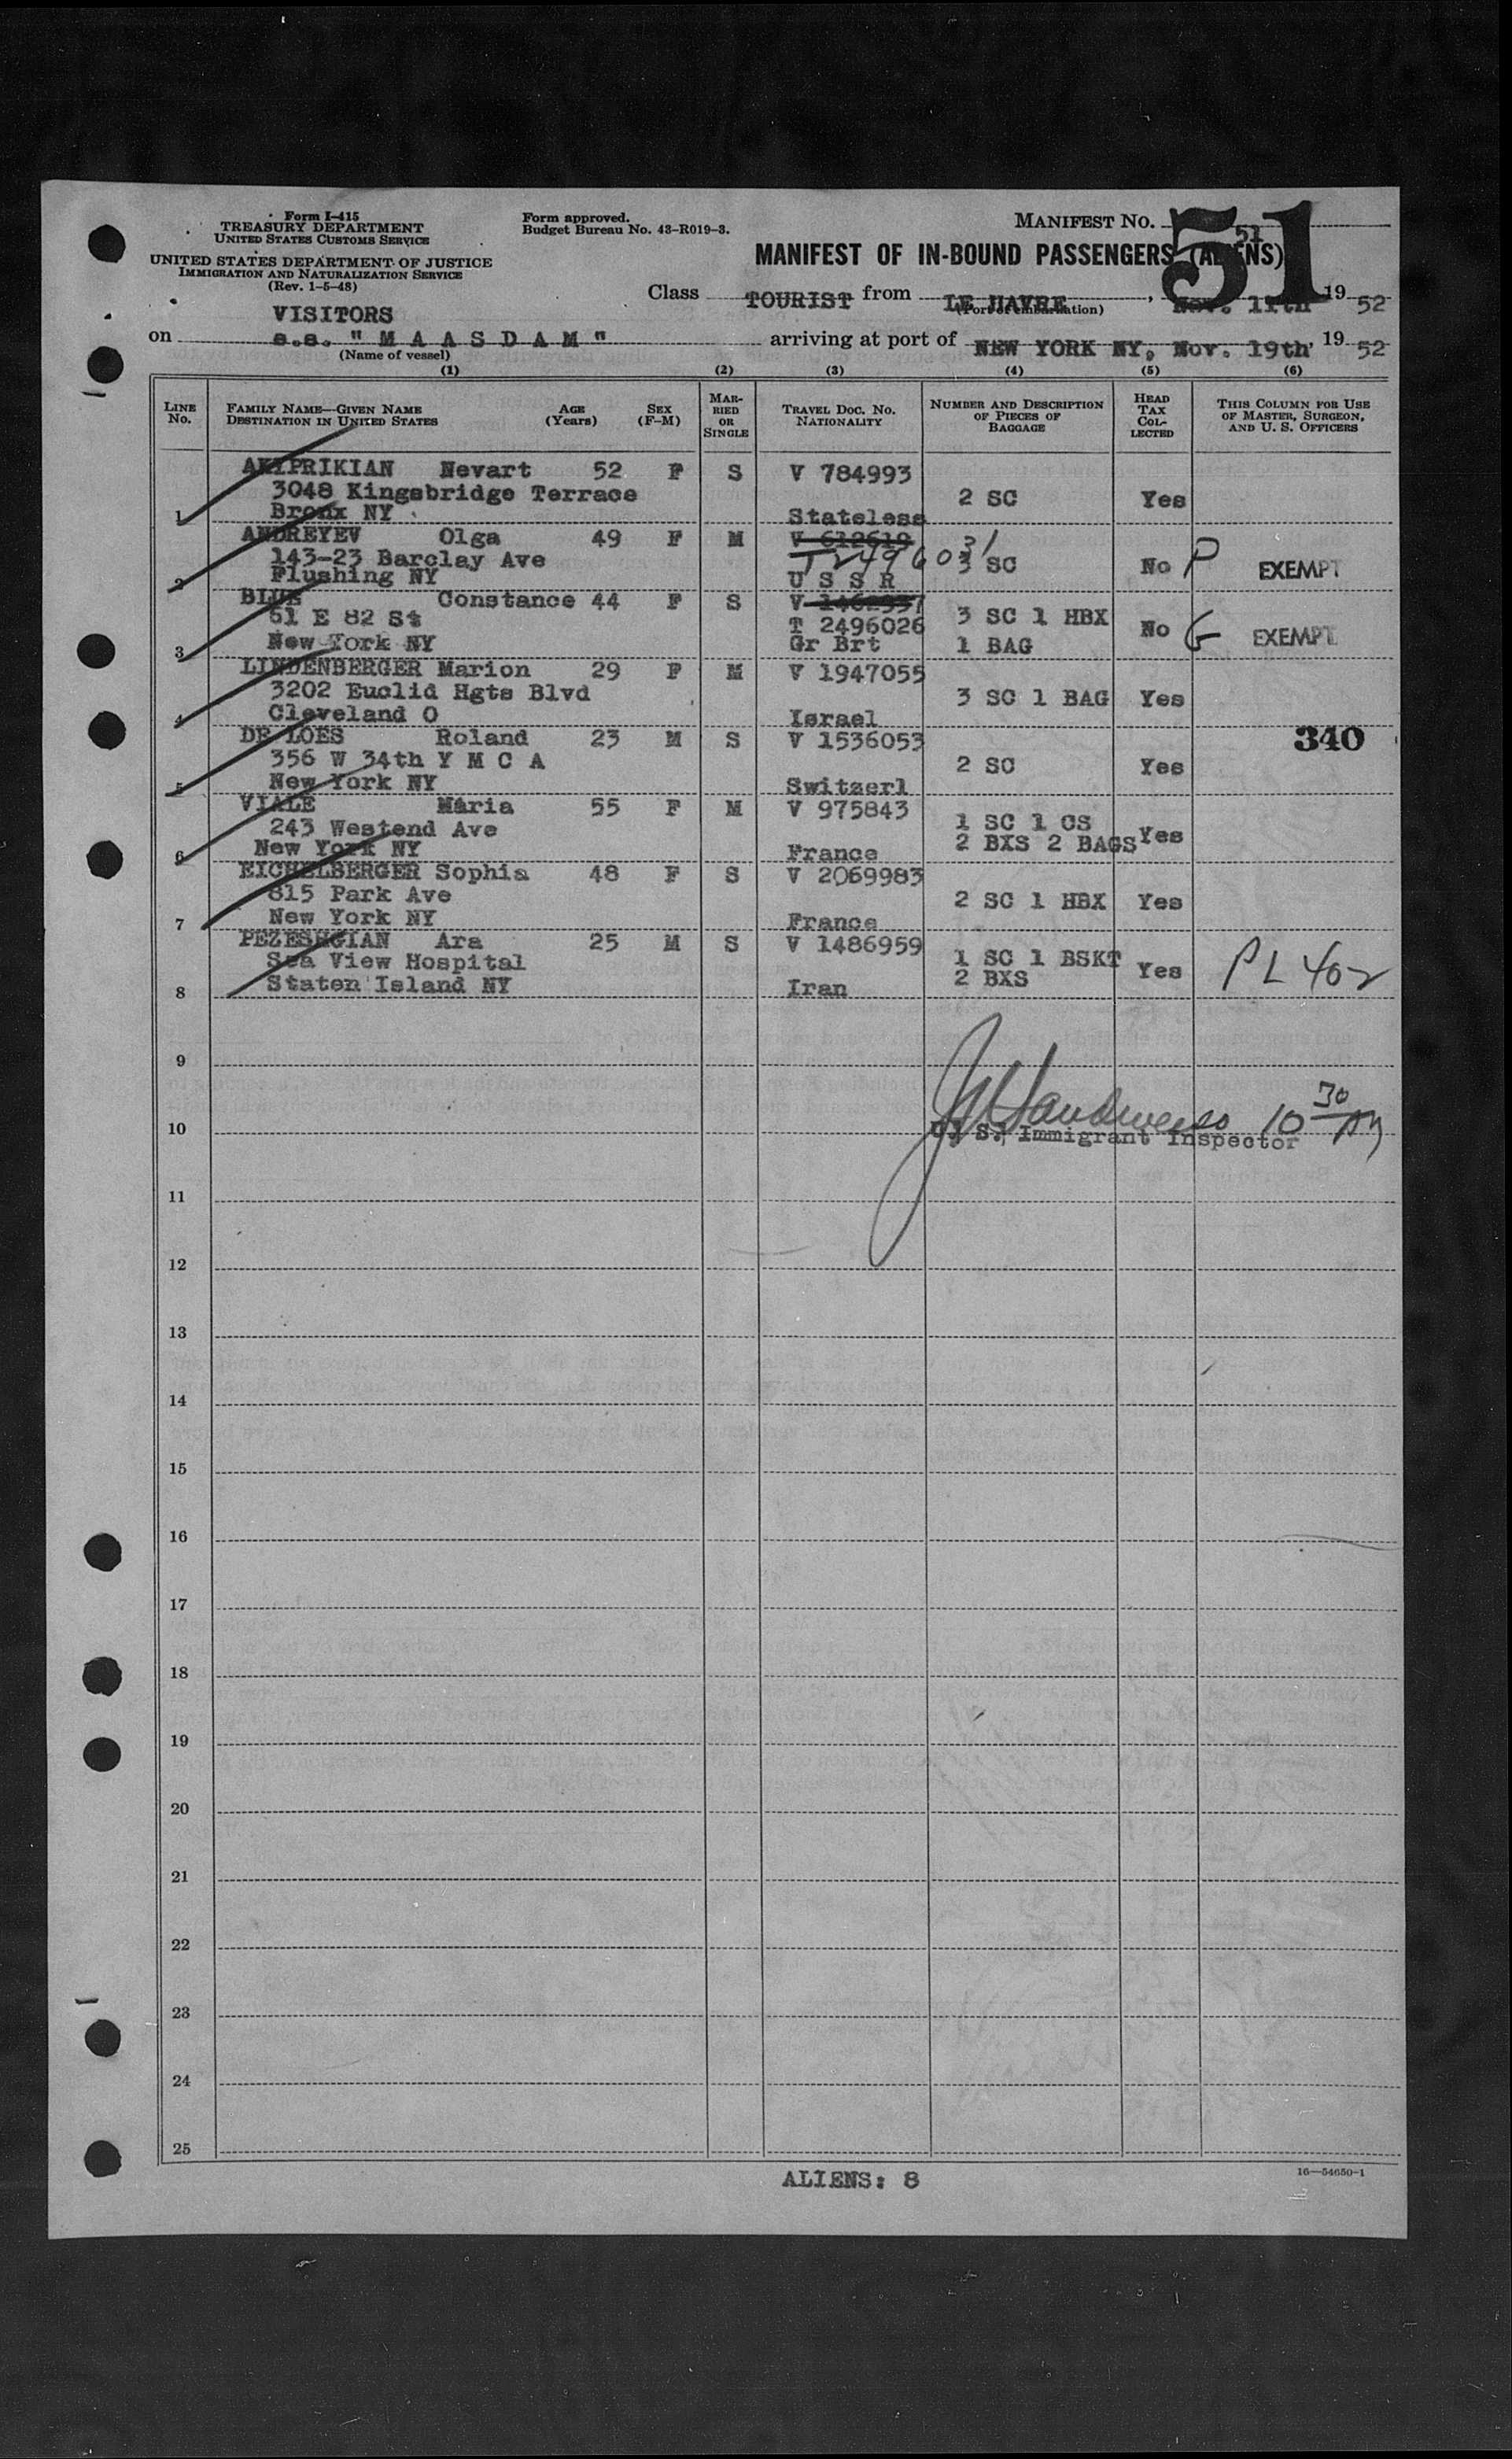 Form I-415
TREASURY DEPARTMENT
UNITED STATES CUSTOMS SERVICE
UNITED STATES DEPARTMENT OF JUSTICE
IMMIGRATION AND NATURALIZATION SERVICE
(Rev. 1-5-48)
Form approved.
Budget Bureau No. 43-R019-3.
MANIFEST NO. 51
51
MANIFEST OF IN-BOUND PASSENGERS (ALIENS)
Class TOURIST from LE HAVRE, Nov. 11th 19 52
(Port of embarkation)
VISITORS
on s.s. "M A A S D A M" arriving at port of NEW YORK NY, Nov. 19th, 19 52
(Name of vessel)
(1) (2) (3) (4) (5) (6)
LINE No.
FAMILY NAME—GIVEN NAME
DESTINATION IN UNITED STATES
AGE (Years)
SEX (F-M)
MARRIED OR SINGLE
TRAVEL DOC. NO.
NATIONALITY
NUMBER AND DESCRIPTION OF PIECES OF BAGGAGE
HEAD TAX COLLECTED
THIS COLUMN FOR USE OF MASTER, SURGEON, AND U. S. OFFICERS
Nevart 52 F S V 784993
3048 Kingsbridge Terrace 2 SC Yes
1 Bronx NY Stateless
ANDREYEV Olga 49 F M V 612619
143-23 Barclay Ave T2496031 3 SC No P EXEMPT
2 Flushing NY U S S R
BLUE Constance 44 F S V 1462937
51 E 82 St T 2496026 3 SC 1 HBX No G EXEMPT
3 New York NY Gr Brt 1 BAG
LINDENBERGER Marion 29 F M V 1947055
3202 Euclid Hgts Blvd 3 SC 1 BAG Yes
4 Cleveland O Israel
DE LOES Roland 23 M S V 1536053 340
356 W 34th Y M C A 2 SC Yes
5 New York NY Switzerl
VIALE Maria 55 F M V 975843
243 Westend Ave 1 SC 1 CS Yes
6 New York NY France 2 BXS 2 BAGS
EICHELBERGER Sophia 48 F S V 2069983
815 Park Ave 2 SC 1 HBX Yes
7 New York NY France
PEZESHGIAN Ara 25 M S V 1486959
Sea View Hospital 1 SC 1 BSKT Yes PL 402
8 Staten Island NY Iran 2 BXS
9
10 10 30 AM
U. S. Immigrant Inspector
11
12
13
14
15
16
17
18
19
20
21
22
23
24
25
ALIENS: 8
16—54650-1